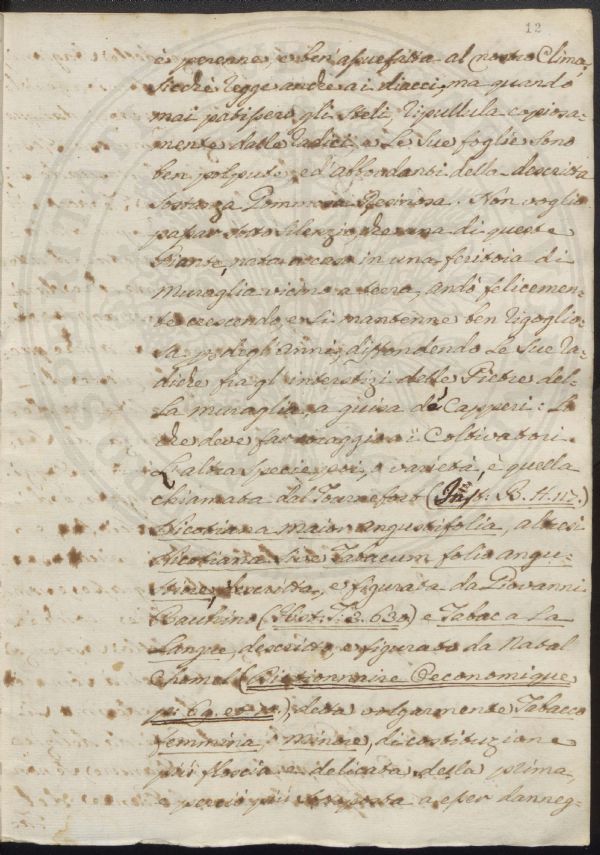 12
è perenne e ben assuefatta al nostro Clima,
sicchè regge anche ai diacci, ma quando
mai patissero gli steli ripullula copiosa-
mente dalle radici. Le sue foglie sono
ben polpute, ed abbondanti della descritta
sostanza Gommosa Resinosa. Non voglio
passar sotto silenzio, che una di queste
Piante, nata a caso in una feritoia di
muraglia vicino a terra, andò felicemen-
te crescendo, e si mantenne ben rigoglio-
sa più degli anni, diffondendo le sue ra-
diche fra gl'interstizi delle Pietre del-
la muraglia, a guisa de' Capperi: Lo
che deve far coraggio a i Coltivatori.
L'altra specie poi, o varietà, è quella
chiamata dal Tournefort (Inst. R. H. 117.)
Nicotiana maior angustifolia, altresì
Nicotiana sive Tabacum folio angu-
stiore, descritta, e figurata da Giovanni
Bauhino (Hist. T. 3. 630) e Tabac a la
Langue, descritto, e figurato da Natal
Chomel (Dictionnaire Oeconomique
69. ), detta volgarmente Tabacco
femmina, minore, di costituzione
più floscia e delicata della prima,
e perciò più sottoposta a esser danneg-